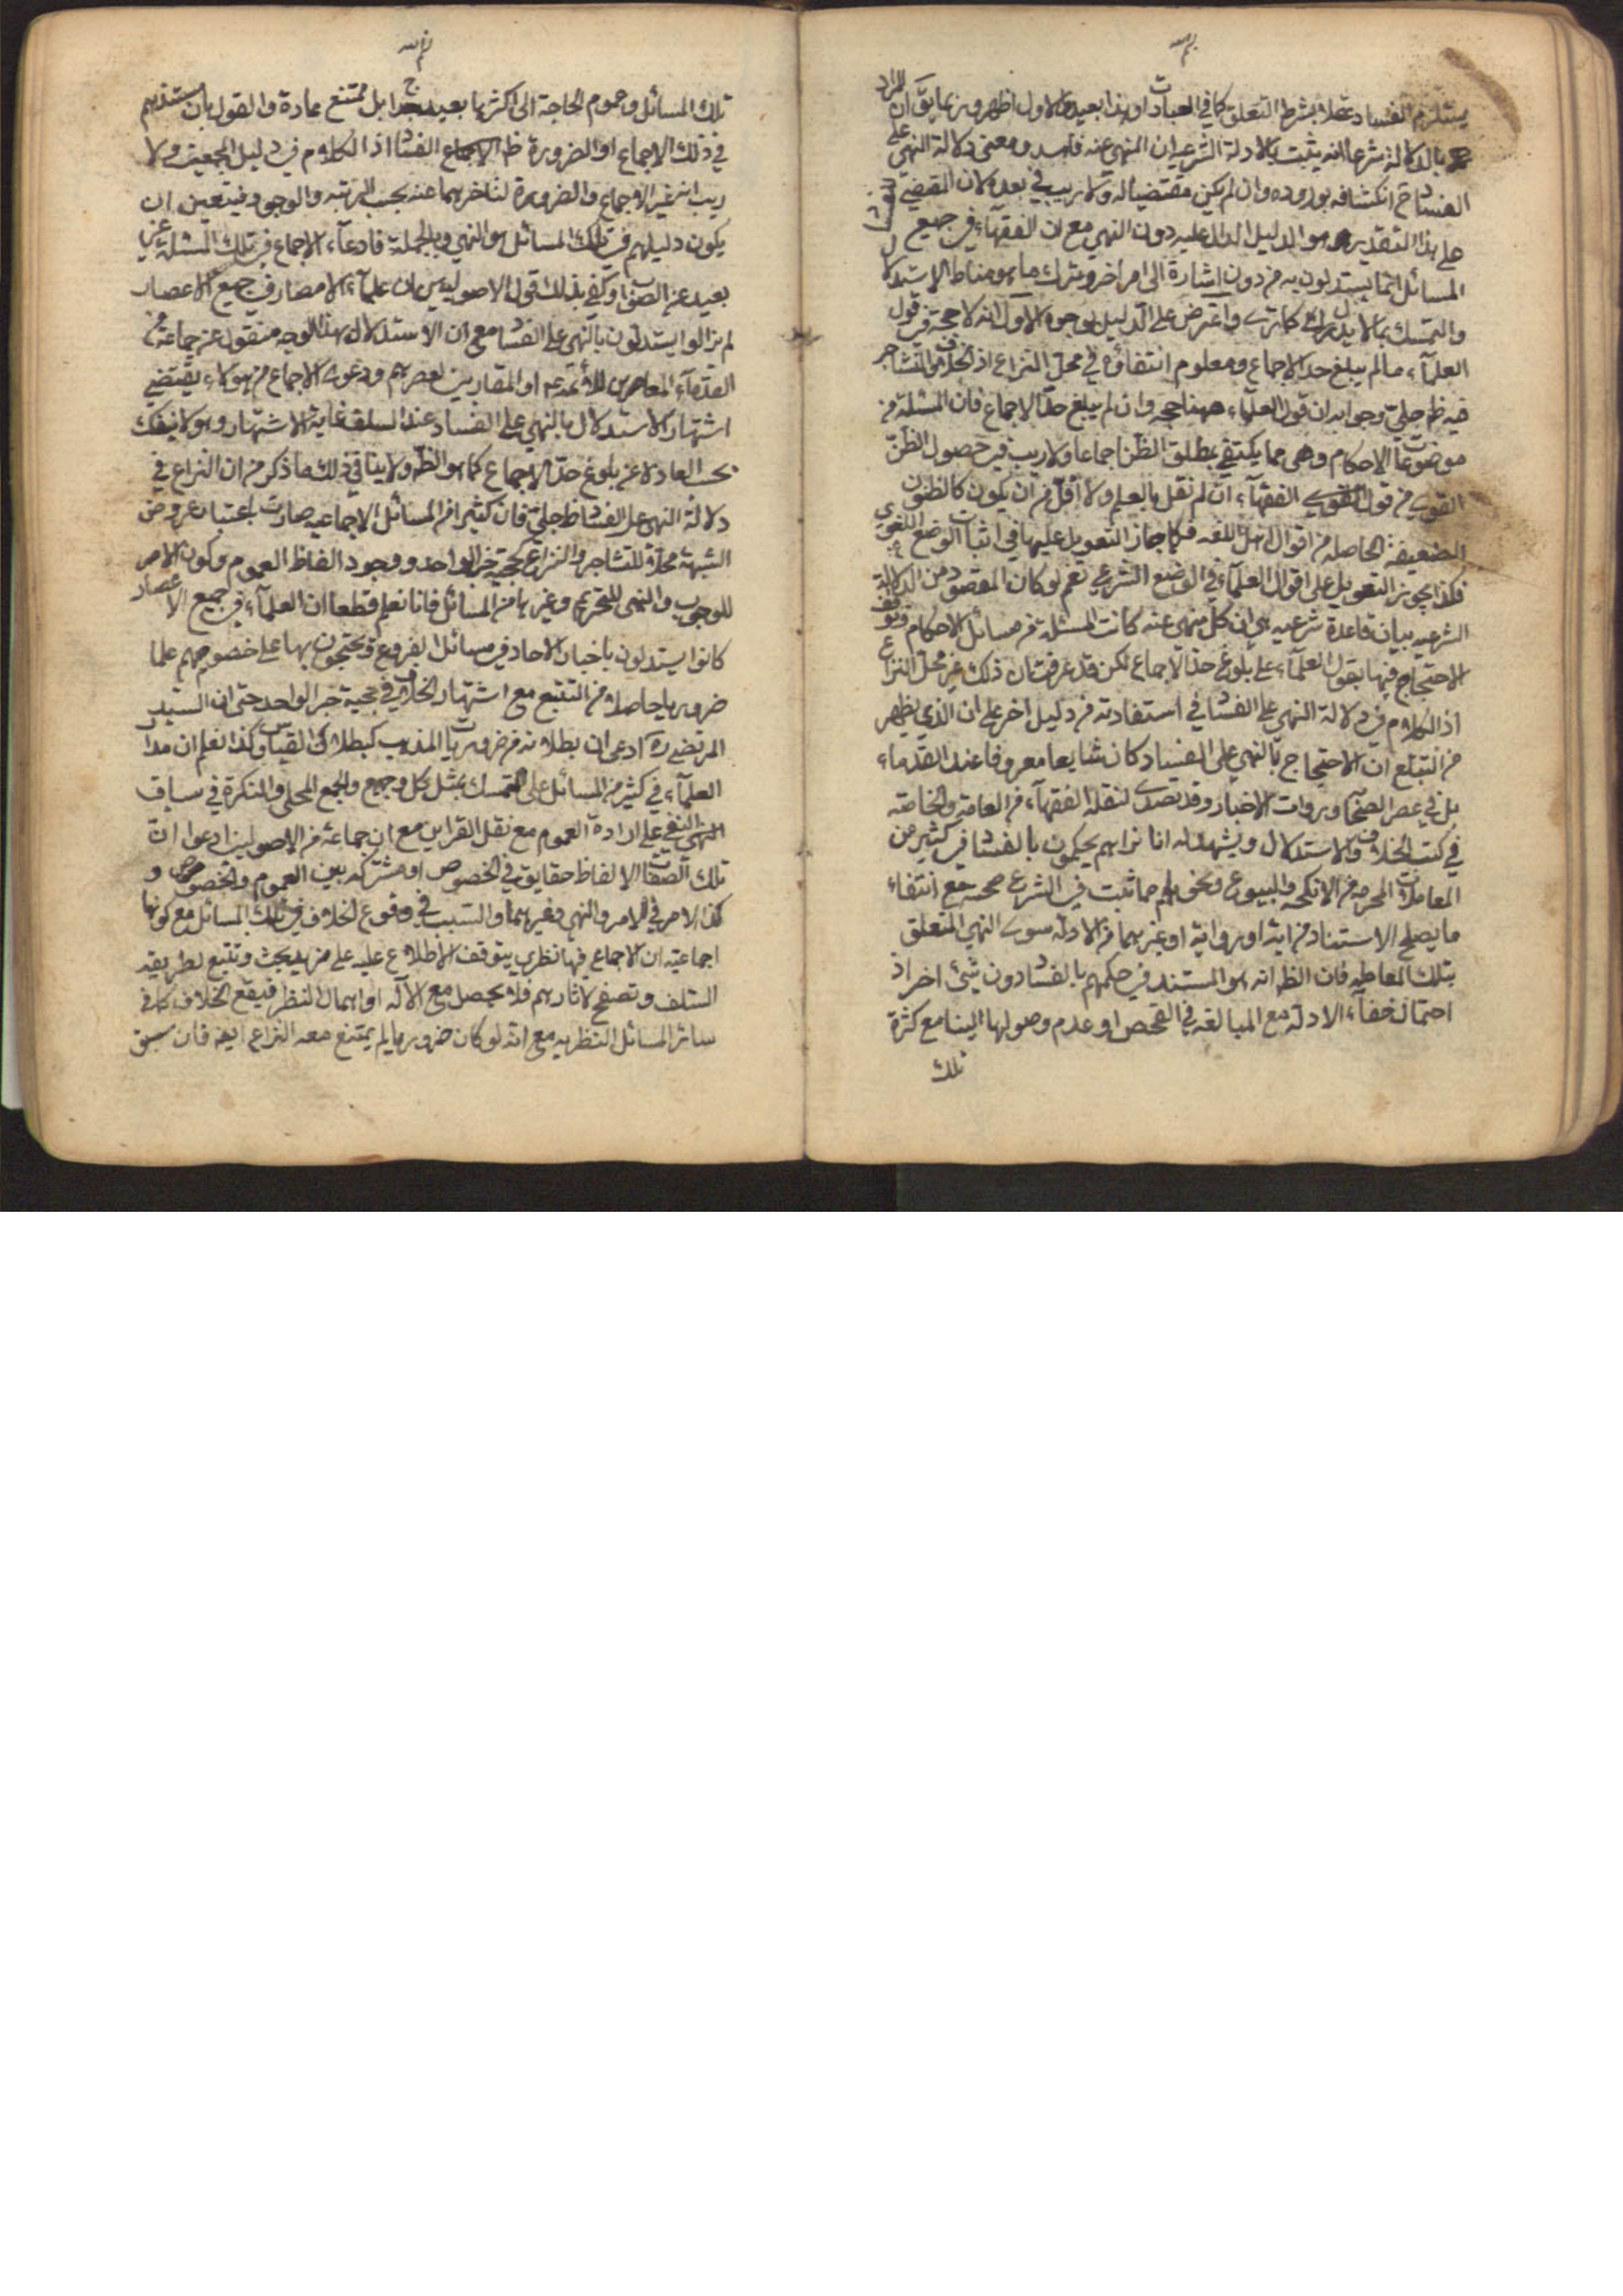 يستلزم الفساد عقلا بشرط التعلق كما في العبادات او هذا بعيد والاول اظهر وربما يق ان المراد
بالدلالة شرعا انه يثبت بالادلة الشرعية ان المنهي عنه فاسد ومعنى دلالة النهي على
الفساد ح انكشافه بوروده وان لم يكن مقتضيا له ولا ريب في بعده لان المقتضي للفساد
على هذا التقدير هو الدليل الدال عليه دون النهي مع ان الفقهاء في جميع
المسائل انما يستدلون به من دون اشارة الى امر اخر وترك ما هو مناط الاستدلال
والتمسك بما لا يدل كما ترى واعترض على الدليل بوجوه الاول انه لا حجة في قول
العلماء ما لم يبلغ حد الاجماع ومعلوم انتفاؤه في محل النزاع اذ الخلاف والتشاجر
فيه ظ جلي وجوابه ان قول العلماء ههنا حجة وان لم يبلغ حد الاجماع فان المسئلة من
موضوعات الاحكام وهي مما يكتفي بمطلق الظن اجماعا ولا ريب في حصول الظن
القوي من قول الفقهاء ان لم نقل بالعلم ولا اقل من ان يكون كالظنون
الضعيفة الحاصلة من اقوال اهل اللغه فكما جاز التعويل عليها في اثبات الوضع اللغوي
فكذا يجوز التعويل على اقوال العلماء في الوضع الشرعي نعم لو كان المقصود من الدلالة
الشرعيه بيان قاعدة شرعيه هي ان كل منهي عنه كانت المسئلة من مسائل الاحكام وتوقف
الاحتجاج فيها بقول العلماء على بلوغ حد الاجماع لكن قد عرفت ان ذلك غير محل النزاع
اذ الكلام في دلالة النهي على الفساد في استفادته من دليل اخر على ان الذي يظهر
من التتبع ان الاحتجاج بالنهي على الفساد كان شايعا معروفا عند القدماء
بل في عصر الصحابه وروات الاخبار وقد تصدى لنقله الفقهاء من العامة والخاصه
في كتب الخلاف والاستدلال ويشهد له انا نراهم يحكمون بالفساد في كثير من
المعاملات المحرمه من الانكحه والبيوع ونحوهم مما ثبت في الشرع صحته مع انتفاء
ما يصلح الاستناد من اية او رواية او غيرهما من الادله سوى النهي المتعلق
بتلك المعامله فان الظ انه هو المستند في حكمهم بالفساد دون شئ اخر اذ
احتمال خفاء الادلة مع المبالغه في الفحص او عدم وصولها الينا مع كثرة
تلك
تلك المسائل وعموم الحاجة الى اكثرها بعيد جدا بل ممتنع عادة والقول بان مستندهم
في ذلك الاجماع او الضرورة ظ الفساد اذ الكلام في دليل المجمعين ولا
ريب انه غير الاجماع والضرورة لتأخرهما عنه بحسب الرتبه والوجود فيتعين ان
يكون دليلهم في تلك المسائل هو النهي وبالجملة فادعاء الاجماع في تلك المسئلة غير
بعيد عن الصواب وكفى بذلك قول الاصوليين ان علماء الامصار في جميع الاعصار
لم يزالوا يستدلون بالنهي على الفساد مع ان الاستدلال بهذا الوجه منقول عن جماعة من
القدماء المعاصرين للأئمة ع او المقاربين لعصرهم ودعوى الاجماع من هؤلاء يقتضي
اشتهار الاستدلال بالنهي على الفساد عند السلف غاية الاشتهار وهو لا ينفك
بحسب العادة عن بلوغ حد الاجماع كما هو الظ ولا ينافي ذلك ما ذكر من ان النزاع في
دلالة النهي على الفساد ظ جلي فان كثيرا من المسائل الاجماعيه صارت باعتبار عروض
الشبهة محلا للتشاجر والنزاع كحجية خبر الواحد ووجود الفاظ العموم وكون الامر
للوجوب والنهي للتحريم وغيرها من المسائل فانا نعلم قطعا ان العلماء في جميع الاعصار
كانوا يستدلون باخبار الاحاد في مسائل الفروع ويحتجون بها على خصومهم علما
ضروريا حاصلا من التتبع مع اشتهار الخلاف في حجية خبر الواحد حتى ان السيد
المرتضى ره ادعى ان بطلانه من ضروريات المذهب كبطلان القياس وكذا نعلم ان مدار
العلماء في كثير من المسائل على التمسك بمثل كل وجميع والجمع المحلى والنكرة في سياق
النفي على ارادة العموم مع نقل القراين مع ان جماعة من الاصوليين ادعوا ان
تلك الالفاظ حقايق في الخصوص او مشتركه بين العموم والخصوص و
كذا الامر في الامر والنهي وغيرهما والسبب في وقوع الخلاف في تلك المسائل مع كونها
اجماعيه ان الاجماع فيها نظري يتوقف الاطلاع عليه على مزيد بحث وتتبع لطريقه
السلف وتصفح لاثارهم فلا يحصل مع الاله او اهمال النظر فيقع الخلاف كما في
سائر المسائل النظريه مع انه لو كان ضروريا لم يمتنع معه النزاع ايضا فان سبق